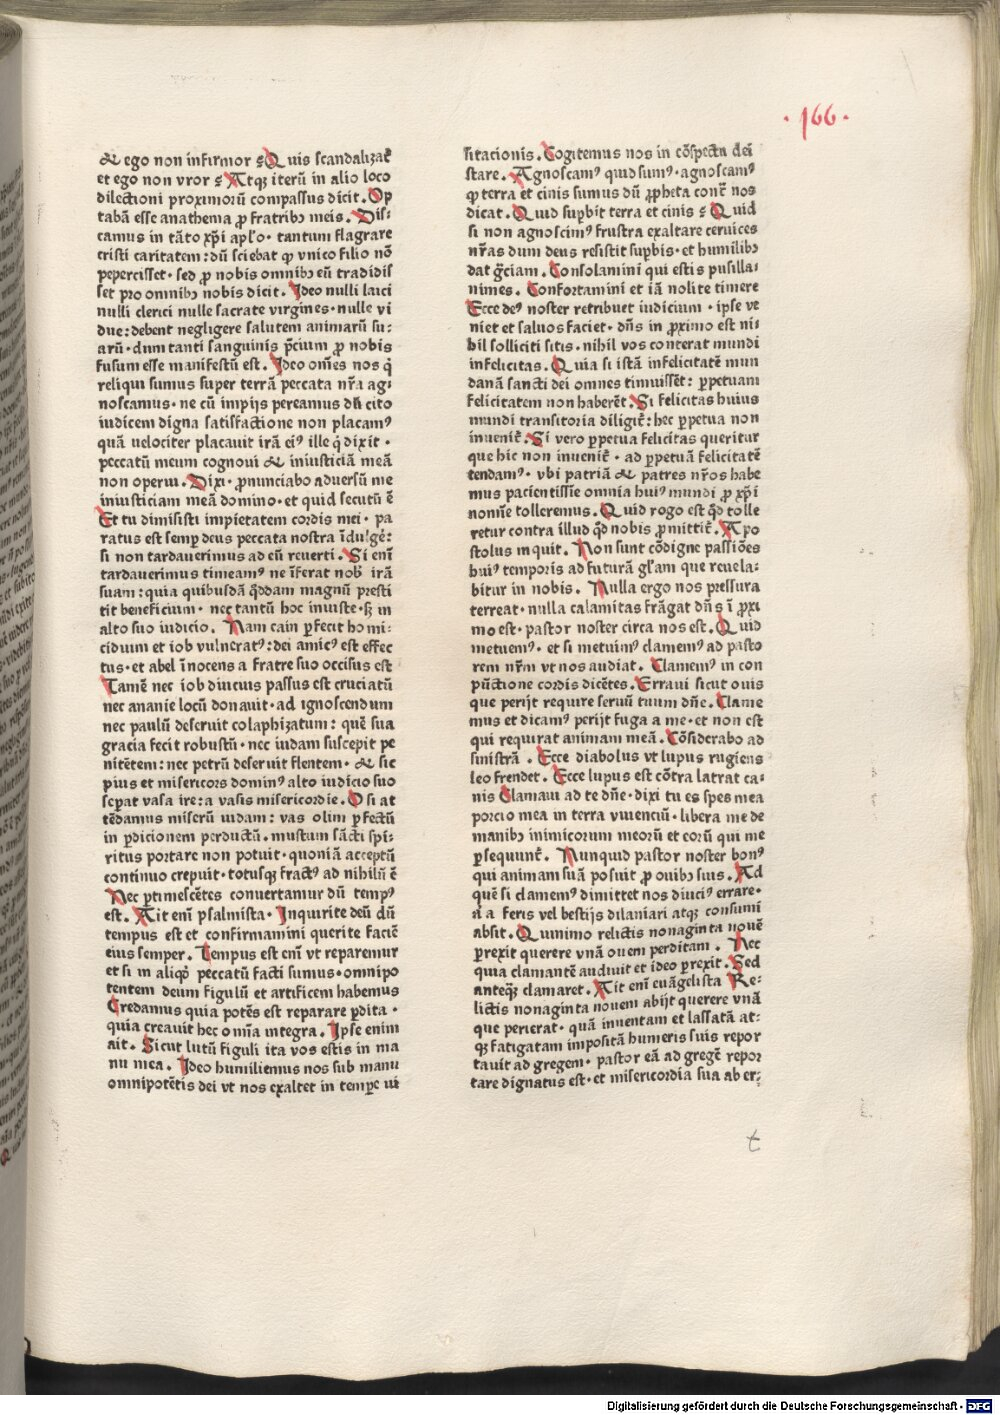 ·166·
& ego non infirmor ꝛ Quis scandalizat̃
et ego non vror ꝛ Atqꝫ iterũ in alio loco
dilectioni proximorũ compassus dicit. Op
tabã esse anathema ꝓ fratribꝫ meis. Dis⸗
camus in tãto xp̃i apl̃o · tantum flagrare
cristi caritatem: dũ sciebat ꝙ vnico filio nõ
pepercisset · sed ꝓ nobis omnibꝫ eũ tradidis
set pro omnibꝫ nobis dicit. Ideo nulli laici
nulli clerici nulle sacrate virgines · nulle vi
due: debent negligere salutem animarũ su⸗
arũ · dum tanti sanguinis p̃cium ꝓ nobis
fusum esse manifestũ est. Ideo om̃es nos q̇
reliqui sumus super terrã peccata nr̃a ag⸗
noscamus · ne cũ impijs pereamus dũ cito
iudicem digna satisfactione non placamꝰ
quã uelociter placauit irã eiꝰ ille q̇ dixit ·
peccatũ meum cognoui & iniusticiã meã
non operui. Dixi · ꝓnunciabo aduersũ me
iniusticiam meã domino · et quid secutũ ẽ
Et tu dimisisti impietatem cordis mei · pa
ratus est semꝑ deus peccata nostra ĩdulgẽ:
si non tardauerimus ad eũ reuerti. Si enĩ
tardauerimus timeamꝰ ne ĩferat nob̃ irã
suam: quia quibusdã q̃ddam magnũ presti
tit beneficium · nec tantũ hoc iniuste · sꝫ in
alto suo iudicio. Nam cain ꝑfecit homi⸗
cidium et iob vulneratꝰ: dei amicꝰ est effec
tus · et abel ĩnocens a fratre suo occisus est
Tamẽ nec iob diucius passus est cruciatũ
nec ananie locũ donauit · ad ignoscendum
nec paulũ deseruit colaphizatum: quẽ sua
gracia fecit robustũ · nec iudam suscepit pe
nitẽtem: nec petrũ deseruit flentem · & sic
pius et misericors dominꝰ alto iudicio suo
seꝑat vasa ire: a vasis misericordie. O si at
tẽdamus miserũ iudam: vas olim ꝑfectũ
in ꝑdicionem perductũ · mustum sãcti spi⸗
ritus portare non potuit · quoniã acceptũ
continuo crepuit · totusqꝫ fractꝰ ad nihilũ ẽ
Nec ꝑtimescẽtes conuertamur dũ tempꝰ
est. Ait enĩ psalmista · Inquirite deũ dũ
tempus est et confirmamini querite faciẽ
eius semper. Tempus est enĩ vt reparemur
et si in aliqḋ peccatũ facti sumus · omnipo
tentem deum figulũ et artificem habemus
Credamus quia potẽs est reparare ꝑdita ·
quia creauit hec om̃ia integra. Ipse enim
ait. Sicut lutũ figuli ita vos estis in ma
nu mea. Ideo humiliemus nos sub manu
omnipotẽtis dei vt nos exaltet in tempe ui
sitacionis. Cogitemus nos in cõspectu dei
stare. Agnoscamꝰ quid sumꝰ · agnoscamꝰ
ꝙ terra et cinis sumus dũ ꝓpheta cont̃ nos
dicat. Quid suꝑbit terra et cinis ꝛ Quid
si non agnoscimꝰ frustra exaltare ceruices
nr̃as dum deus resistit suꝑbis · et humilibꝫ
dat gr̃ciam. Consolamini qui estis pusilla⸗
nimes. Confortamini et iã nolite timere
Ecce deꝰ noster retribuet iudicium · ipse ve
niet et saluos faciet · dñs in ꝓximo est ni⸗
hil solliciti sitis · nihil vos conterat mundi
infelicitas. Quia si istã infelicitatẽ mun
danã sancti dei omnes timuissẽt: ꝑpetuam
felicitatem non haberẽt. Si felicitas huius
mundi transitoria diligit̃: hec ꝑpetua non
inuenit̃. Si vero ꝑpetua felicitas queritur
que hic non inuenit̃ · ad ꝑpetuã felicitatẽ
tendamꝰ · vbi patriã & patres nr̃os habe
mus pacientissĩe omnia huiꝰ mundi ꝓ xp̃i
nomĩe tolleremus. Quid rogo est q̃d tolle
retur contra illud q̃d nobis ꝓmittit̃. Apo
stolus inquit. Non sunt cõdigne passiões
huiꝰ temporis ad futurã gl̃am que reuela⸗
bitur in nobis. Nulla ergo nos pressura
terreat · nulla calamitas frãgat dñs ĩ ꝓxi
mo est · pastor noster circa nos est. Quid
metuemꝰ · et si metuimꝰ clamemꝰ ad pasto
rem nr̃m vt nos audiat. Clamemꝰ in con
pũctione cordis dicẽtes. Erraui sicut ouis
que perijt require seruũ tuum dñe. Clame
mus et dicamꝰ perijt fuga a me · et non est
qui requirat animam meã. Cõsiderabo ad
sinistrã. Ecce diabolus vt lupus rugiens
leo frendet. Ecce lupus est cõtra latrat ca⸗
nis Clamaui ad te dñe · dixi tu es spes mea
porcio mea in terra viuenciũ · libera me de
manibꝫ inimicorum meorũ et eorũ qui me
ꝑsequunt̃. Nunquid pastor noster bonꝰ
qui animam suã posuit ꝓ ouibꝫ suis. Ad
quẽ si clamemꝰ dimittet nos diuciꝰ errare ·
ã a feris vel bestijs dilaniari atqꝫ consumi
absit. Quinimo relictis nonaginta nouẽ
ꝑrexit querere vnã ouem perditam. Nec
quia clamantẽ audiuit et ideo ꝑrexit. Sed
anteqꝫ̃ clamaret. Ait enĩ euãgelista Re⸗
lictis nonaginta nouem abijt querere vnã
que perierat · quã inuentam et lassatã at⸗
qꝫ fatigatam impositã humeris suis repor
tauit ad gregem · pastor eã ad gregẽ repor
tare dignatus est · et misericordia sua ab er⸗
t
Digitalisierung gefördert durch die Deutsche Forschungsgemeinschaft - DFG